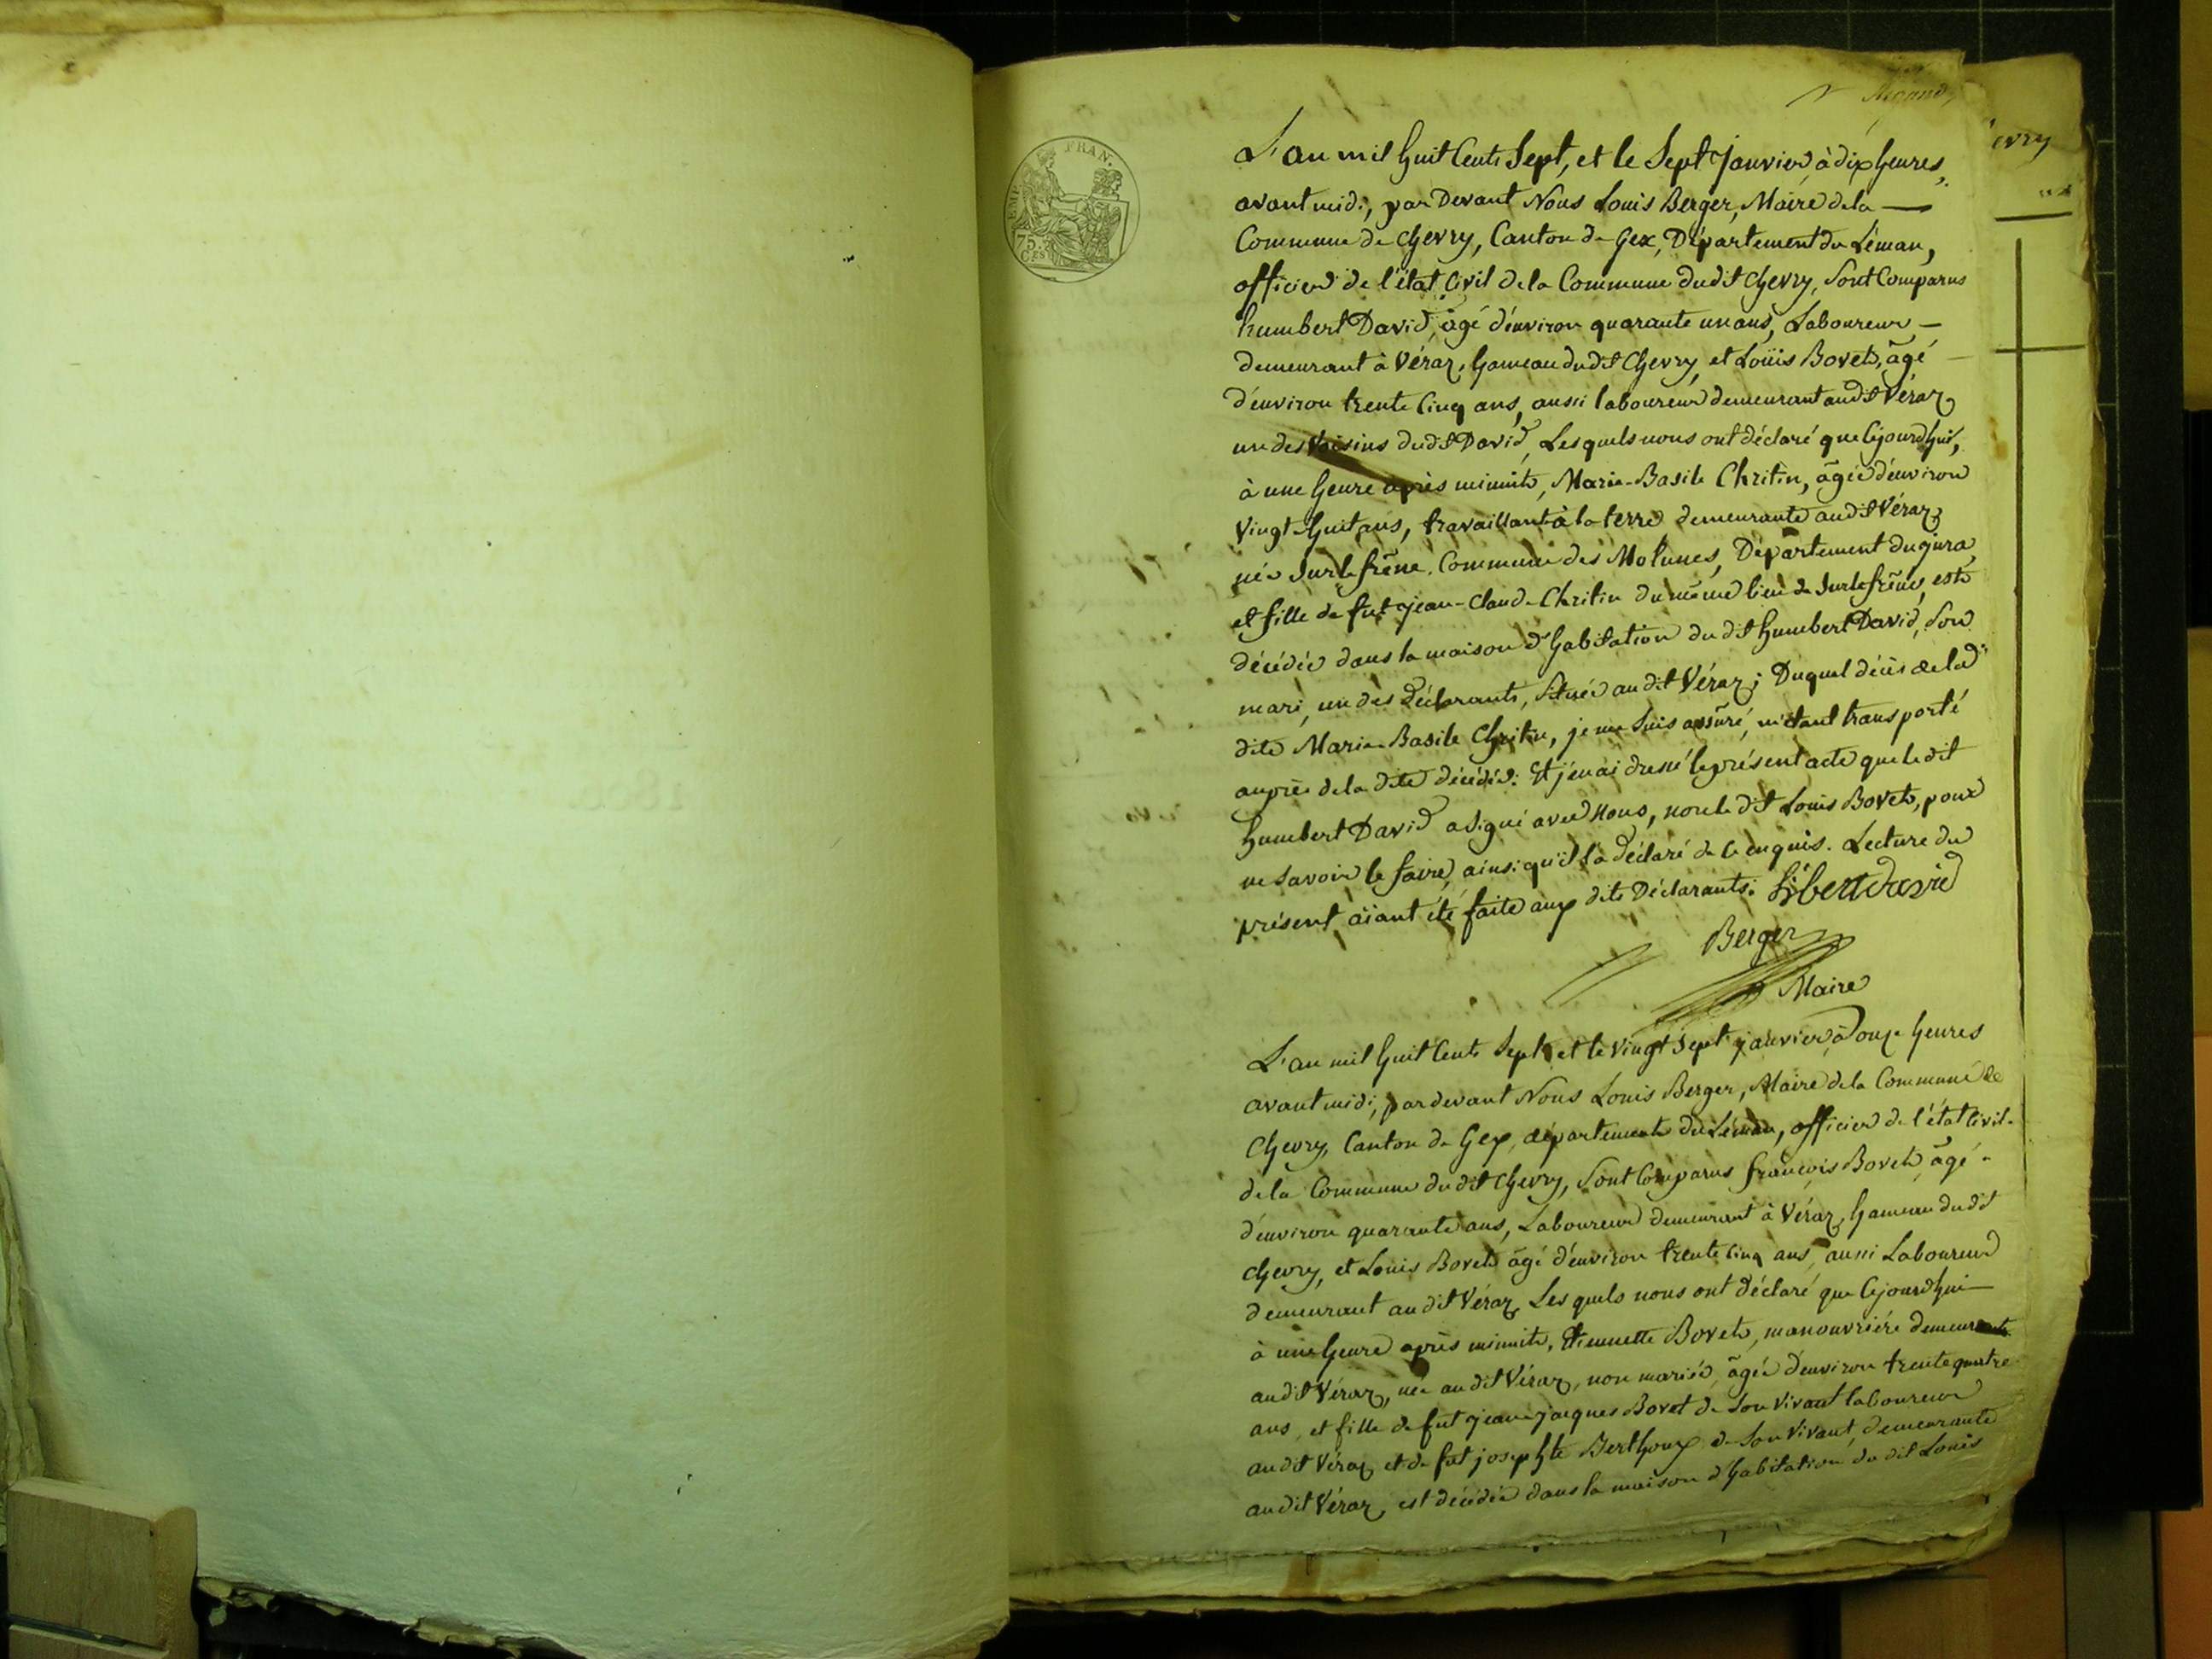 EMP. FRAN.
75.
CES
evry
L'an mil huit Cents Sept, et le Sept janvier à dix heures,
avant midi, par Devant Nous Louis Berger, Maire de la
Commune de Chevry, Canton de Gex, Département du Léman,
officier de l'état Civil de la Commune dudit Chevry, Sont Comparus
humbert David, âgé d'environ quarante un ans, Laboureur
demeurant à Véraz, hameau dudit Chevry, et Louis Bovet, âgé
d'environ trente Cinq ans, aussi laboureur demeurant audit Véraz,
un des Voisins dudit David, Lesquels nous ont déclaré que Cejourdhui,
à une heure après minuit, Marie-Basile Chritin, âgée d'environ
Vingt huit ans, travaillant à la terre demeurante audit Véraz,
née Sur le frêne, Commune des Molunes, Département du jura,
et fille de fut jean-Claude Chritin du même lieu de Sur le frêne, est
décédée dans la maison d'habitation du dit humbert David, Son
mari, un des déclarants, Située au dit Véraz; Duquel décès de la
dite Marie-Basile Chritin, je me Suis assuré, m'étant transporté
auprès de la dite décédée: Et j'en ai dressé le présent acte que le dit
humbert David a Signé avec Nous, non le dit Louis Bovet, pour
ne Savoir le faire, ainsi qu'il l'a déclaré de ce enquis. Lecture du
présent aiant été faite aux dits Déclarants.
Berger
Maire
L'an mil huit Cents Sept et le Vingt Sept janvier à onze heures
avant midi, par devant Nous Louis Berger, Maire de la Commune de
Chevry, Canton de Gex, département du Léman, officier de l'état Civil
de la Commune du dit Chevry, Sont Comparus françois Bovet, âgé
d'environ quarante ans, Laboureur demeurant à Véraz, hameau dudit
Chevry, et Louis Bovet âgé d'environ trente Cinq ans, aussi Laboureur
demeurant au dit Véraz, Lesquels nous ont déclaré que Cejourdhui
à une heure après minuit, Etiennette Bovet, manouvrière demeurante
audit Véraz, née audit Véraz, non mariée, âgée d'environ trente quatre
ans, et fille de fut jean-jacques Bovet de Son Vivant laboureur
audit Véraz, et de fut josephte Berthoux de Son Vivant, demeurante
audit Véraz, est décédée dans la maison d'habitation du dit Louis